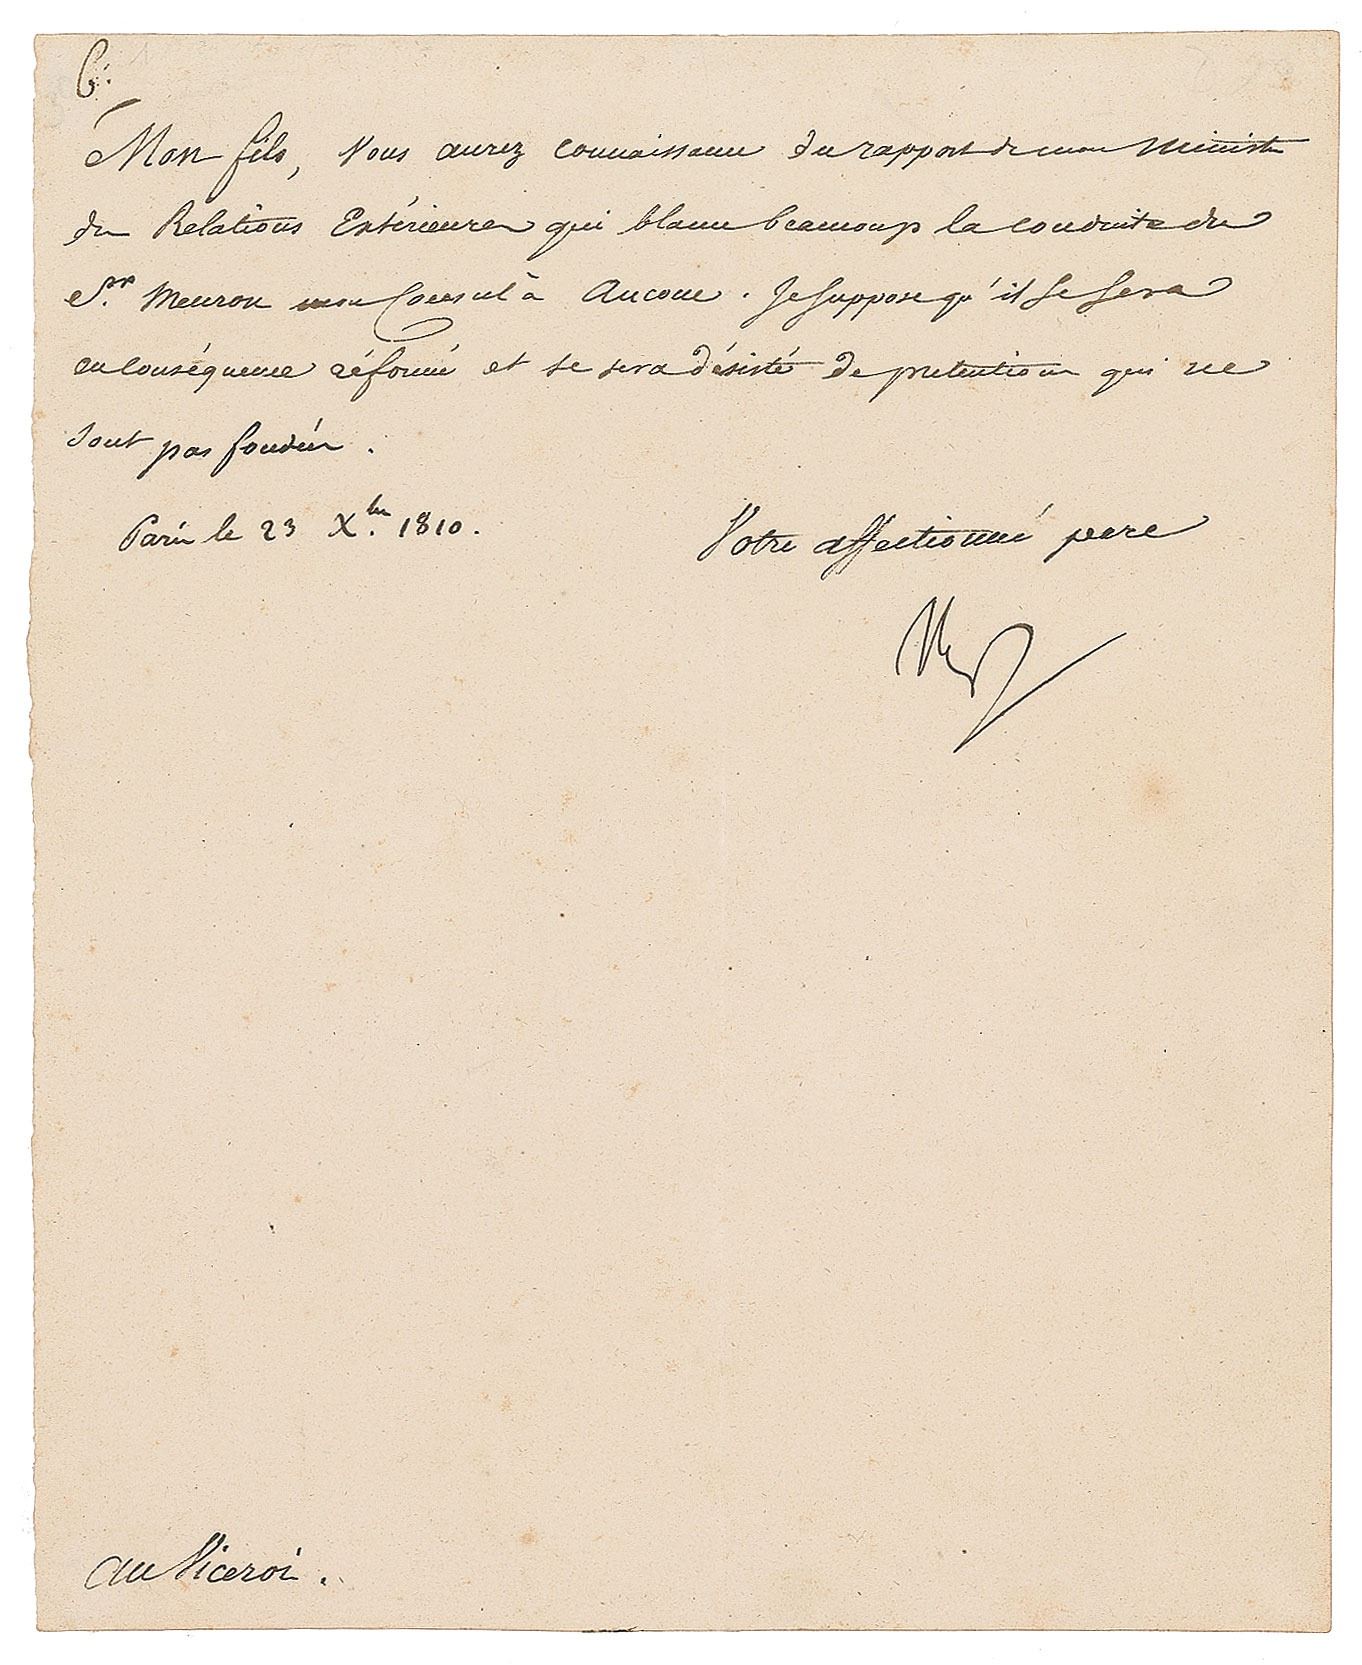 6.
Mon fils, Vous aurez connaissance du rapport de mon Ministre
des Relations Extérieures qui blame beaucoup la conduite du
Sr. Meuron mon Consul à Ancone. Je suppose qu'il se sera
en conséquence réformé et se sera désisté de pretentions qui ne
sont pas fondées.
Paris le 23 Xbre. 1810.
Votre affectionné pere
Nap
au Viceroi.